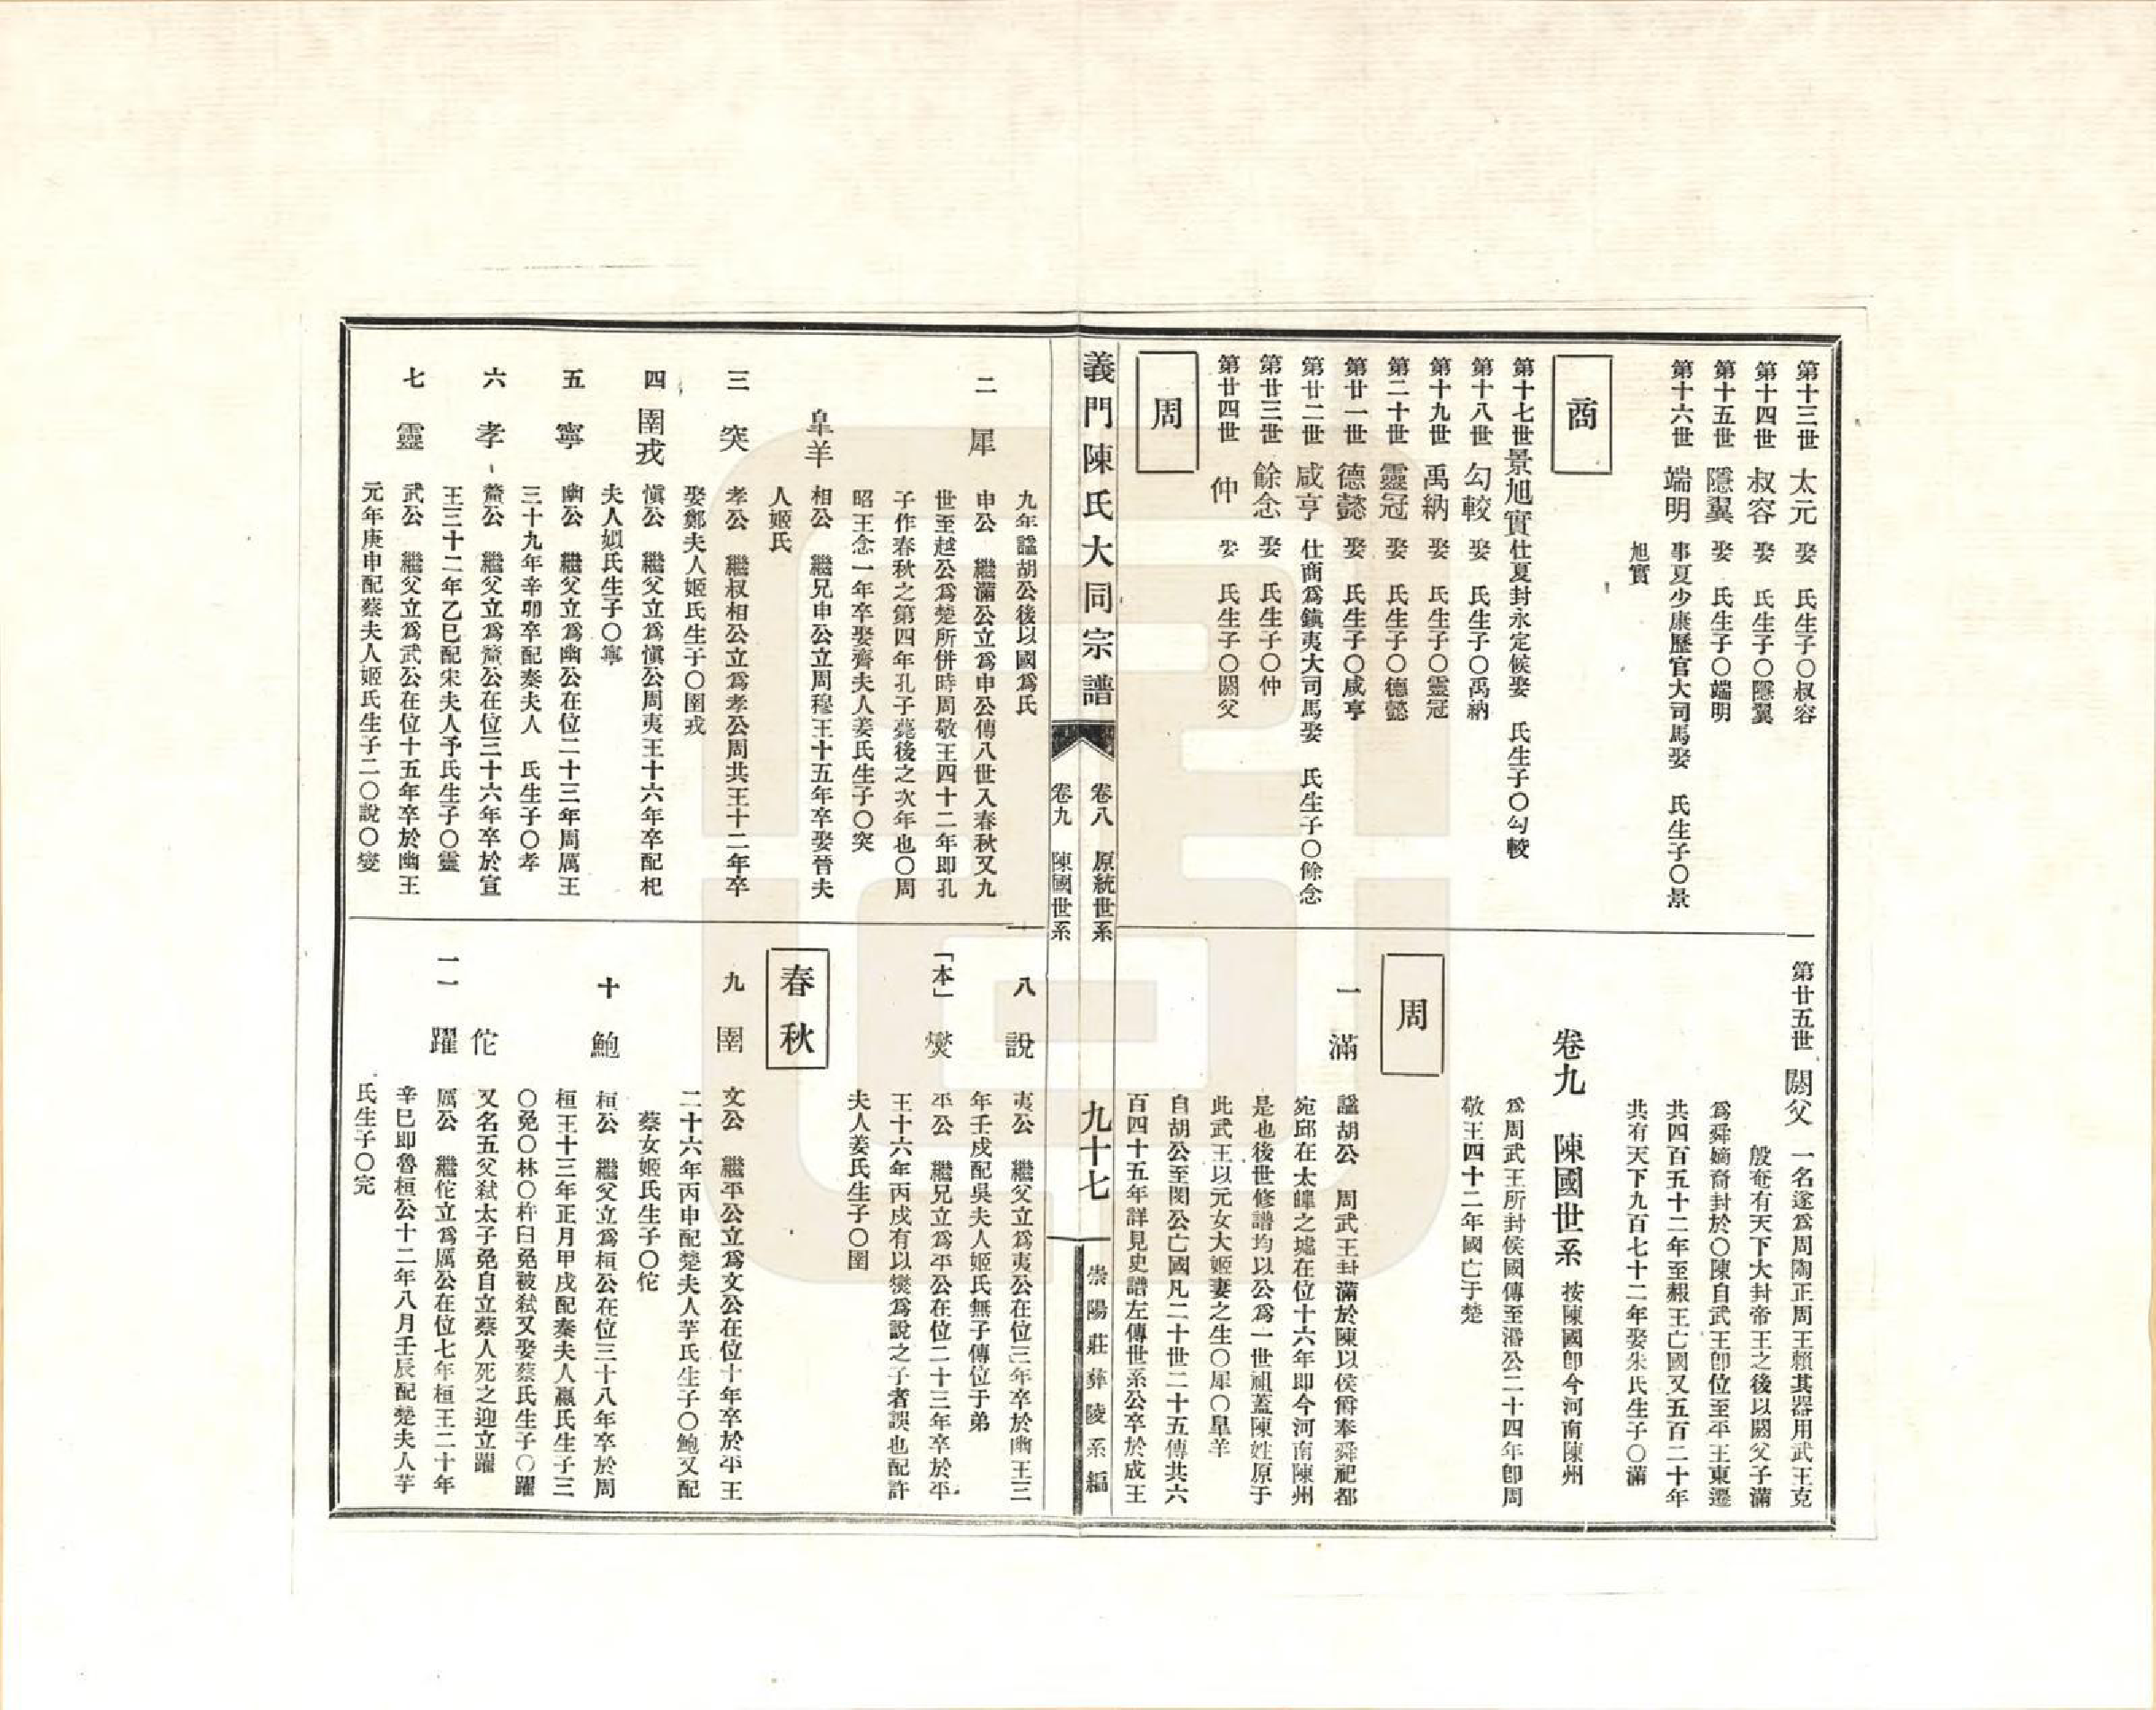 第十三世　太元　娶　氏生子〇叔容
第十四世　叔容　娶　氏生子〇隱翼
第十五世　隱翼　娶　氏生子〇端明
第十六世　端明　事夏少康歷官大司馬娶　氏生子〇景
旭實
商
第十七世　景旭實　仕夏封永定候娶　氏生子〇勾較
第十八世　勾較　娶　氏生子〇禹納
第十九世　禹納　娶　氏生子〇靈冠
第二十世　靈冠　娶　氏生子〇德懿
第廿一世　德懿　娶　氏生子〇咸亨
第廿二世　咸亨　仕商爲鎮夷大司馬娶　氏生子〇餘念
第廿三世　餘念　娶　氏生子〇仲
第廿四世　仲　娶　氏生子〇閼父
周
第廿五世　閼父　一名遂爲周陶正周王賴其器用武王克
殷奄有天下大封帝王之後以閼父子滿
爲舜嫡裔封於〇陳自武王卽位至平王東遷
共四百五十二年至赧王亡國又五百二十年
共有天下九百七十二年娶朱氏生子〇滿
卷九　陳國世系　按陳國卽今河南陳州
爲周武王所封侯國傳至湣公二十四年卽周
敬王四十二年國亡于楚
周
一　滿　諡胡公　周武王封滿於陳以侯爵奉舜祀都
宛邱在太皥之墟在位十六年即今河南陳州
是也後世修譜均以公爲一世祖蓋陳姓原于
此武王以元女大姬妻之生〇犀〇臯羊
自胡公至閔公亡國凡二十世二十五傳共六
百四十五年詳見史譜左傳世系公卒於成王
義門陳氏大同宗譜　卷八　原統世系
卷九　陳國世系　九十七　崇陽莊彝陵系編
九年諡胡公後以國爲氏
二　犀　申公　繼滿公立爲申公傳八世入春秋又九
世至越公爲楚所併時周敬王四十二年即孔
子作春秋之第四年孔子薨後之次年也〇周
昭王念一年卒娶齊夫人姜氏生子〇突
臯羊　相公　繼兄申公立周穆王十五年卒娶晉夫
人姬氏
三　突　孝公　繼叔相公立爲孝公周共王十二年卒
娶鄭夫人姬氏生子〇圉戎
四　圉戎　愼公　繼父立爲愼公周夷王十六年卒配杞
夫人姒氏生子〇寧
五　寧　幽公　繼父立爲幽公在位二十三年周厲王
三十九年辛卯卒配秦夫人　氏生子〇孝
六　孝　釐公　繼父立爲釐公在位三十六年卒於宣
王三十二年乙巳配宋夫人予氏生子〇靈
七　靈　武公　繼父立爲武公在位十五年卒於幽王
元年庚申配蔡夫人姬氏生子二〇說〇燮
八　說　夷公　繼父立爲夷公在位三年卒於幽王三
年壬戍配吳夫人姬氏無子傳位于弟
「本」　燮　平公　繼兄立爲平公在位二十三年卒於平
王十六年丙戍有以燮爲說之子者誤也配許
夫人姜氏生子〇圉
春秋
九　圉　文公　繼平公立爲文公在位十年卒於平王
二十六年丙申配楚夫人芊氏生子〇鮑又配
蔡女姬氏生子〇佗
十　鮑　桓公　繼父立爲桓公在位三十八年卒於周
桓王十三年正月甲戌配秦夫人嬴氏生子三
〇免〇林〇杵臼免被弒又娶蔡氏生子〇躍
佗　又名五父弒太子免自立蔡人死之迎立躍
一一　躍　厲公　繼佗立爲厲公在位七年桓王二十年
辛巳即魯桓公十二年八月壬辰配楚夫人芊
氏生子〇完